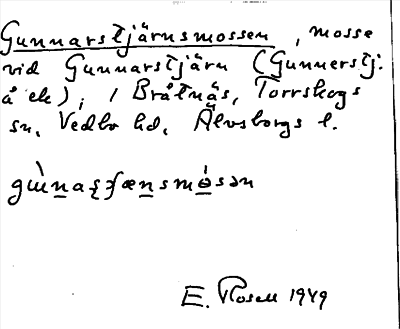 Gunnarstjärnsmossen, mosse
vid Gunnarstjärn (Gunnerstj.
å ek), i Bråtnäs, Torrskogs
sn, Vedbo hd, Älvsborgs l.
E. Rosell 1949